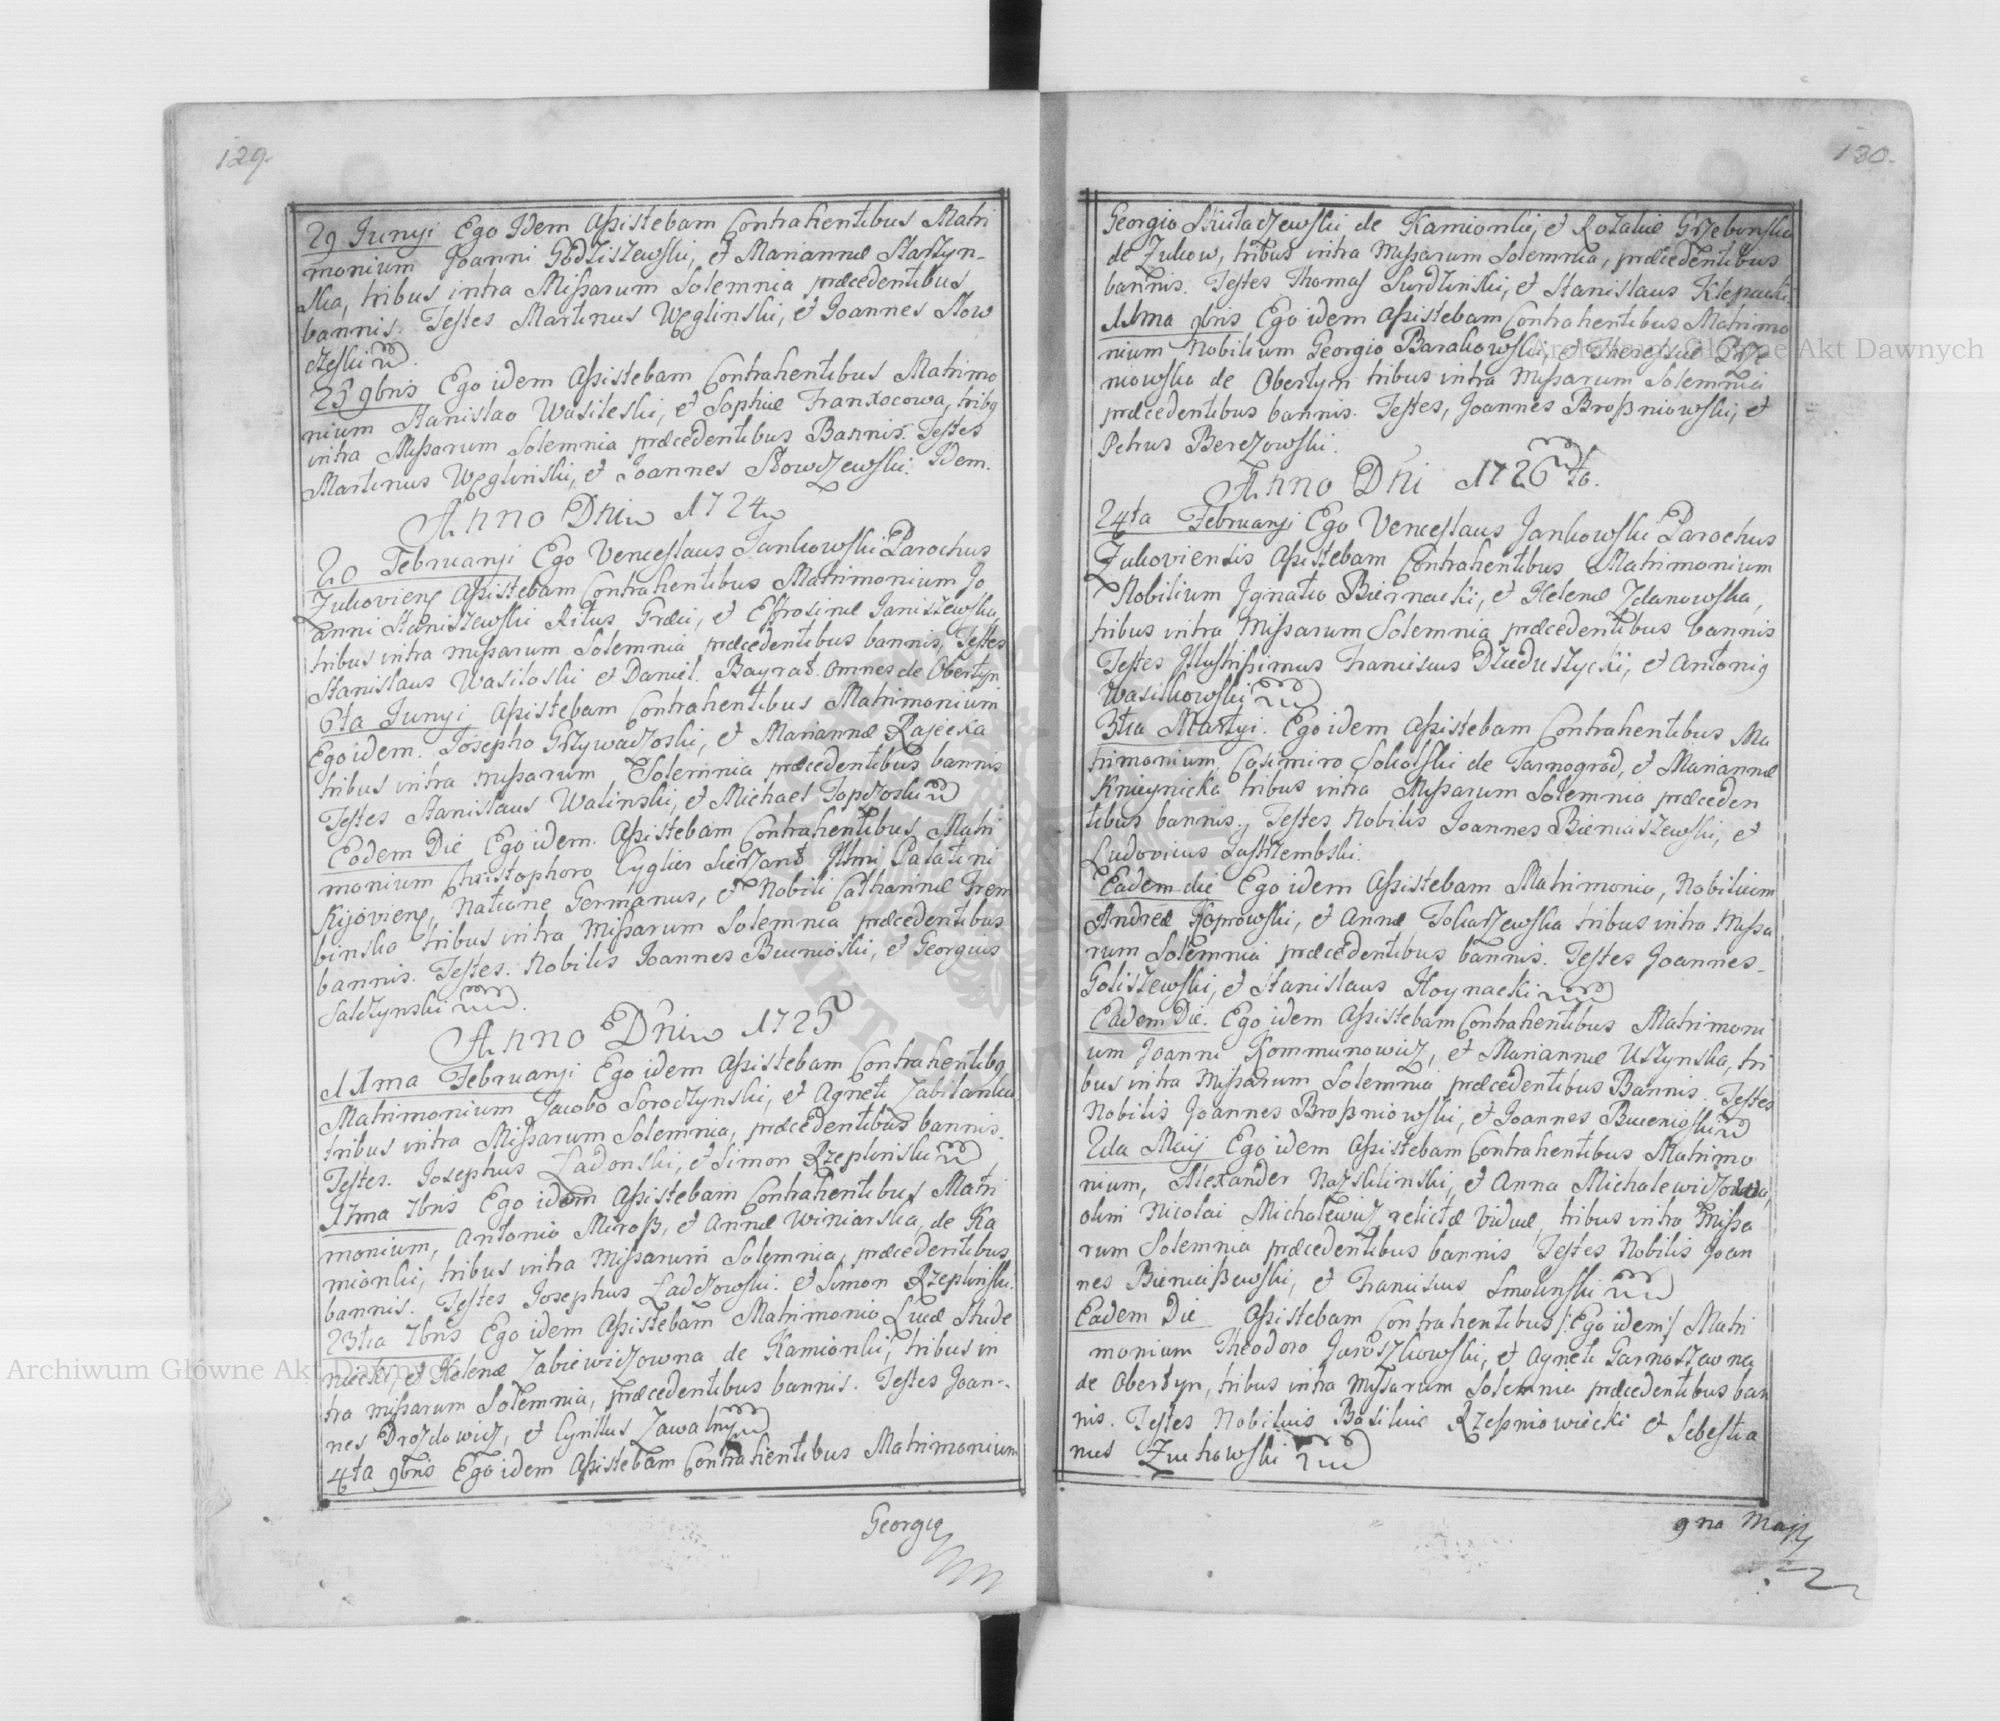 129.
29 Junyi Ego Idem Assistebam Contrahentibus Matri
monium Joanni Godziszewski, et Mariannæ Starzyn-
ska, tribus intra Missarum Solemnia præcedentibus
bannis. Testes Martinus Węglinski, et Joannes Słow
czeski
23 9bris Ego idem Assistebam Contrahentibus Matrimo
nium Stanislao Wasileski, et Sophiæ Tranxocowa, tribq
intra Missarum Solemnia præcedentibus Bannis. Testes
Martinus Węglinski, et Joannes Słowczewski. Idem.
Anno Dni 1724
20 Februarji Ego Venceslaus Jankowski Parochus
Zukoviens Assistebam Contrahentibus Matrimonium Jo
anni Staniszewski Ritus Græci, et Effrosinæ Janiszewska,
tribus intra missarum Solemnia præcedentibus bannis, Testes
Stanislaus Wasiloski et Daniel. Bayrat. omnes de Obertyn
6ta Junyi Assistebam Contrahentibus Matrimonium
Ego idem. Josepho Grzywaczoski, et Mariannæ Rajecka
tribus intra missarum Solemnia præcedentibus bannis
Testes Stanislaus Walinski, et Michael Topczoski
Eodem Die Ego idem. Assistebam Contrahentibus Matri
monium Christophoro Cyglier Sierzant Illmi Palatini
Kijoviens, Natione Germanus, et Nobili Catharinæ Trem
binska tribus intra Missarum Solemnia præcedentibus
bannis. Testes. Nobilis Joannes Buenioski, et Georgius
Salczynski
Anno Dni 1725
11ma Februarji Ego idem Assistebam Contrahentibq
Matrimonium Jacobo Soroczynski, et Agneti Zabilanka
tribus intra Missarum Solemnia, præcedentibus bannis.
Testes. Josephus Ladonski, et Simon Rzeplinski
17ma 7bris Ego idem Assistebam Contrahentibus Matri
monium, Antonio Miroß, et Annæ Winiarska, de Ka
mionki, tribus intra Missarum Solemnia, præcedentibus
bannis. Testes Josephus Ladczowski. et Simon Rzeplinski.
23tia 7bris Ego idem Assistebam Matrimonio Lucæ Stude
niecki, et Helenæ Zabiewiczowna de Kamionki, tribus in
tra missarum Solemnia, præcedentibus bannis. Testes Joan-
nes Drozdowicz, et Cyrillus Zawalny
4ta 9bris Ego idem Assistebam Contrahentibus Matrimonium
Georgiq
130.
Georgio Skutaczewski de Kamionki, et Rozaliæ Grzebinska
de Zukow, tribus intra Missarum Solemnia, præcedentibus
bannis. Testes Thomas Surdlinski, et Stanislaus Klepacki
11ma 9bris Ego idem Assistebam Contrahentibus Matrimo
nium Nobilium Georgio Barakowski, et Theressiæ
niowska de Obertyn tribus intra Missarum Solemnia
præcedentibus bannis. Testes, Joannes Broßniowski, et
Petrus Berezowski.
Anno Dni 1726to.
24ta Februarji Ego Venceslaus Jankowski Parochus
Zukoviensis Assistebam Contrahentibus Matrimonium
Nobilium Ignatio Biernacki, et Helenæ Zdanowska,
tribus intra Missarum Solemnia præcedentibus bannis
Testes Illustrissimus Franciscus Dzieduszycki, et Antoniq
Wasilkowski
3tia Martyi. Ego idem Assistebam Contrahentibus Ma
trimonium, Casimiro Sokolski de Tarnogrod, et Mariannæ
Knieynicka tribus intra Missarum Solemnia præceden
tibus bannis., Testes Nobilis Joannes Bieniaszewski, et
Ludovicus Jastrzembski.
Eadem die Ego idem Assistebam Matrimonio, Nobilium
Andreæ Koprowski, et Annæ, Tokarzewska tribus intra Missa
rum Solemnia præcedentibus bannis. Testes Joannes-
Goliszewski, et Stanislaus Hoynacki
Eadem Die. Ego idem Assistebam Contrahentibus Matrimoni
um Joanni Kommunowicz, et Mariannæ Uszynska, tri
bus intra Missarum Solemnia præcedentibus Bannis. Testes
Nobilis Joannes Broßniowski, et Joannes Buenioski
2da Maij Ego idem Assistebam Contrahentibus Matrimo
nium, Alexander Nazhlinski, et Anna
olim Nicolai Michalewicz relictæ Viduæ, tribus intra Missa
rum Solemnia præcedentibus bannis Testes Nobilis Joan
nes Bieniaßewski, et Franciscus Smolinski
Eadem Die Assistebam Contrahentibus /:Ego idem:/ Matri
monium Theodoro Jaroszkowski, et Agneti Garnoszewna
de Obertyn, tribus intra Missarum Solemnia præcedentibus ban
nis. Testes Nobilius Basilius Rzessniowiecki et Sebestia
nus Zurkowski
9na Majy
Archiwum Główne Akt Dawnych
Archiwum Główne Akt Dawnych